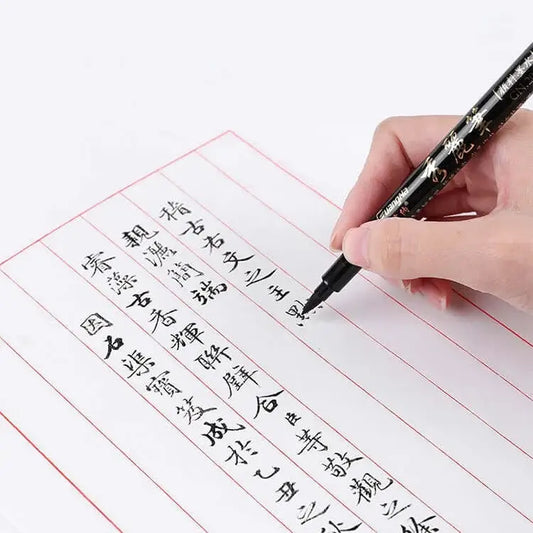 稽古右文之主
親灑簡端
睿藻古香輝聯璧合臣等敬觀之餘
因石渠寶笈成於乙丑之秋
秀麗筆
Guangna